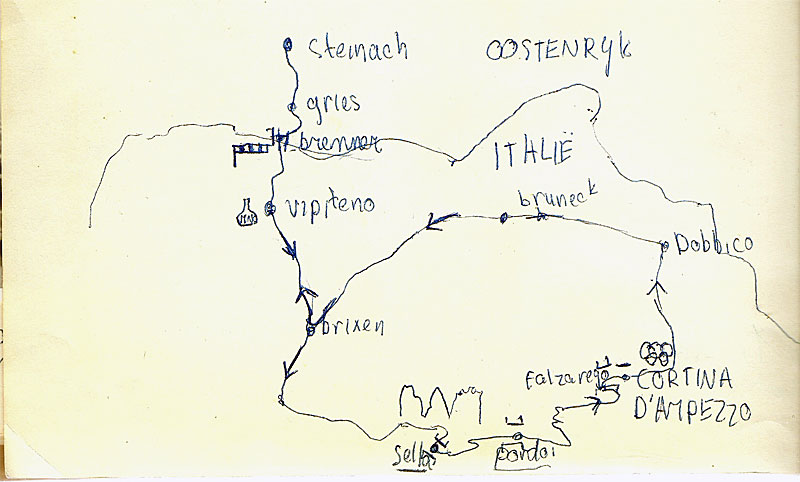 Steinach
OOSTENRYK
gries
brenner
ITALIË
bruneck
vipiteno
Dobbico
brixen
Falzarego
CORTINA
D'AMPEZZO
Sellas
pordoi